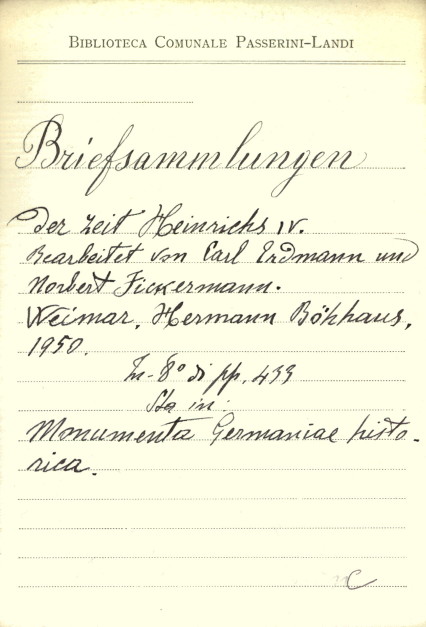 BIBLIOTECA COMUNALE PASSERINI-LANDI
Briefsammlungen
der Zeit Heinrichs IV.
Bearbeitet von Carl Erdmann und
Norbert Fickermann.
Weimar, Hermann Böhhaus,
1950.
In-8° di pp. 433
Sta in:
Monumenta Germaniae histo-
rica.
C